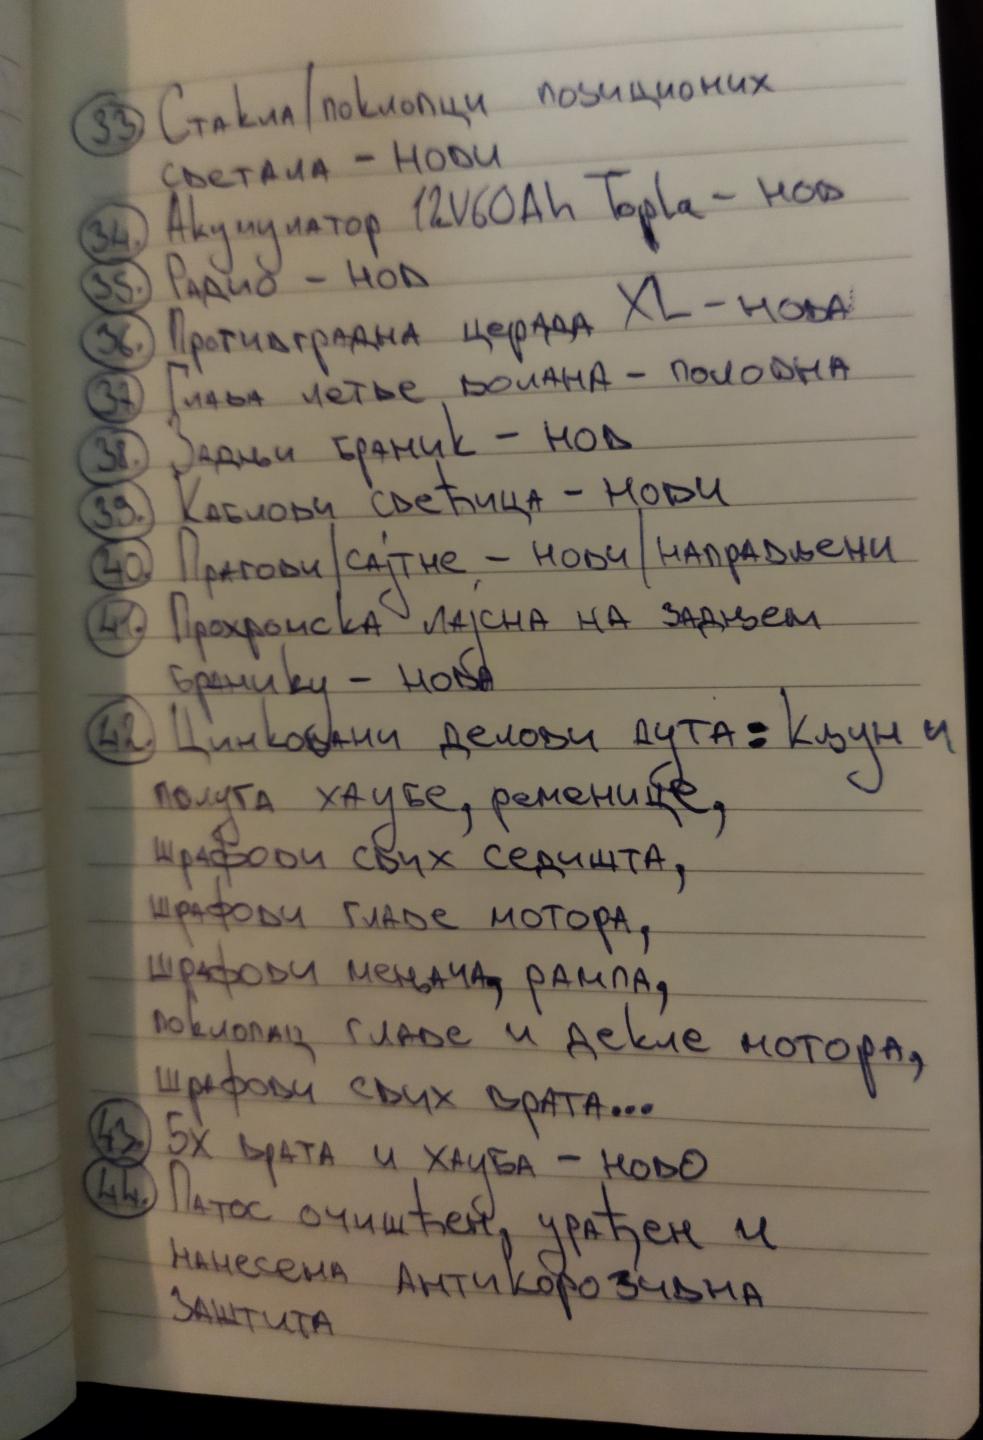 33. Стакла/поклопци позиционих
светала - нови
34. Акумулатор 12V60Ah Topla - нов
35. Радио - нов
36. Противградна церада XL - нова
37. Глава летве волана - половна
38. Задњи браник - нов
39. Каблови свећица - нови
40. Прагови/сајтне - нови/направљени
41. Прохромска лајсна на задњем
бранику - нова
42. Цинковани делови аута: Кљун и
полуга хаубе, ременице,
шрафови свих седишта,
шрафови главе мотора,
шрафови мењача, рампа,
поклопац главе и декле мотора,
шрафови свих врата...
43. 5x врата и хауба - ново
44. Патос очишћен, урађен и
нанесена антикорозивна
заштита